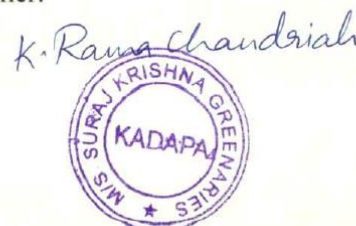 K. Rama Chandriah
M/S SURAJ KRISHNA GREENARIES
KADAPA